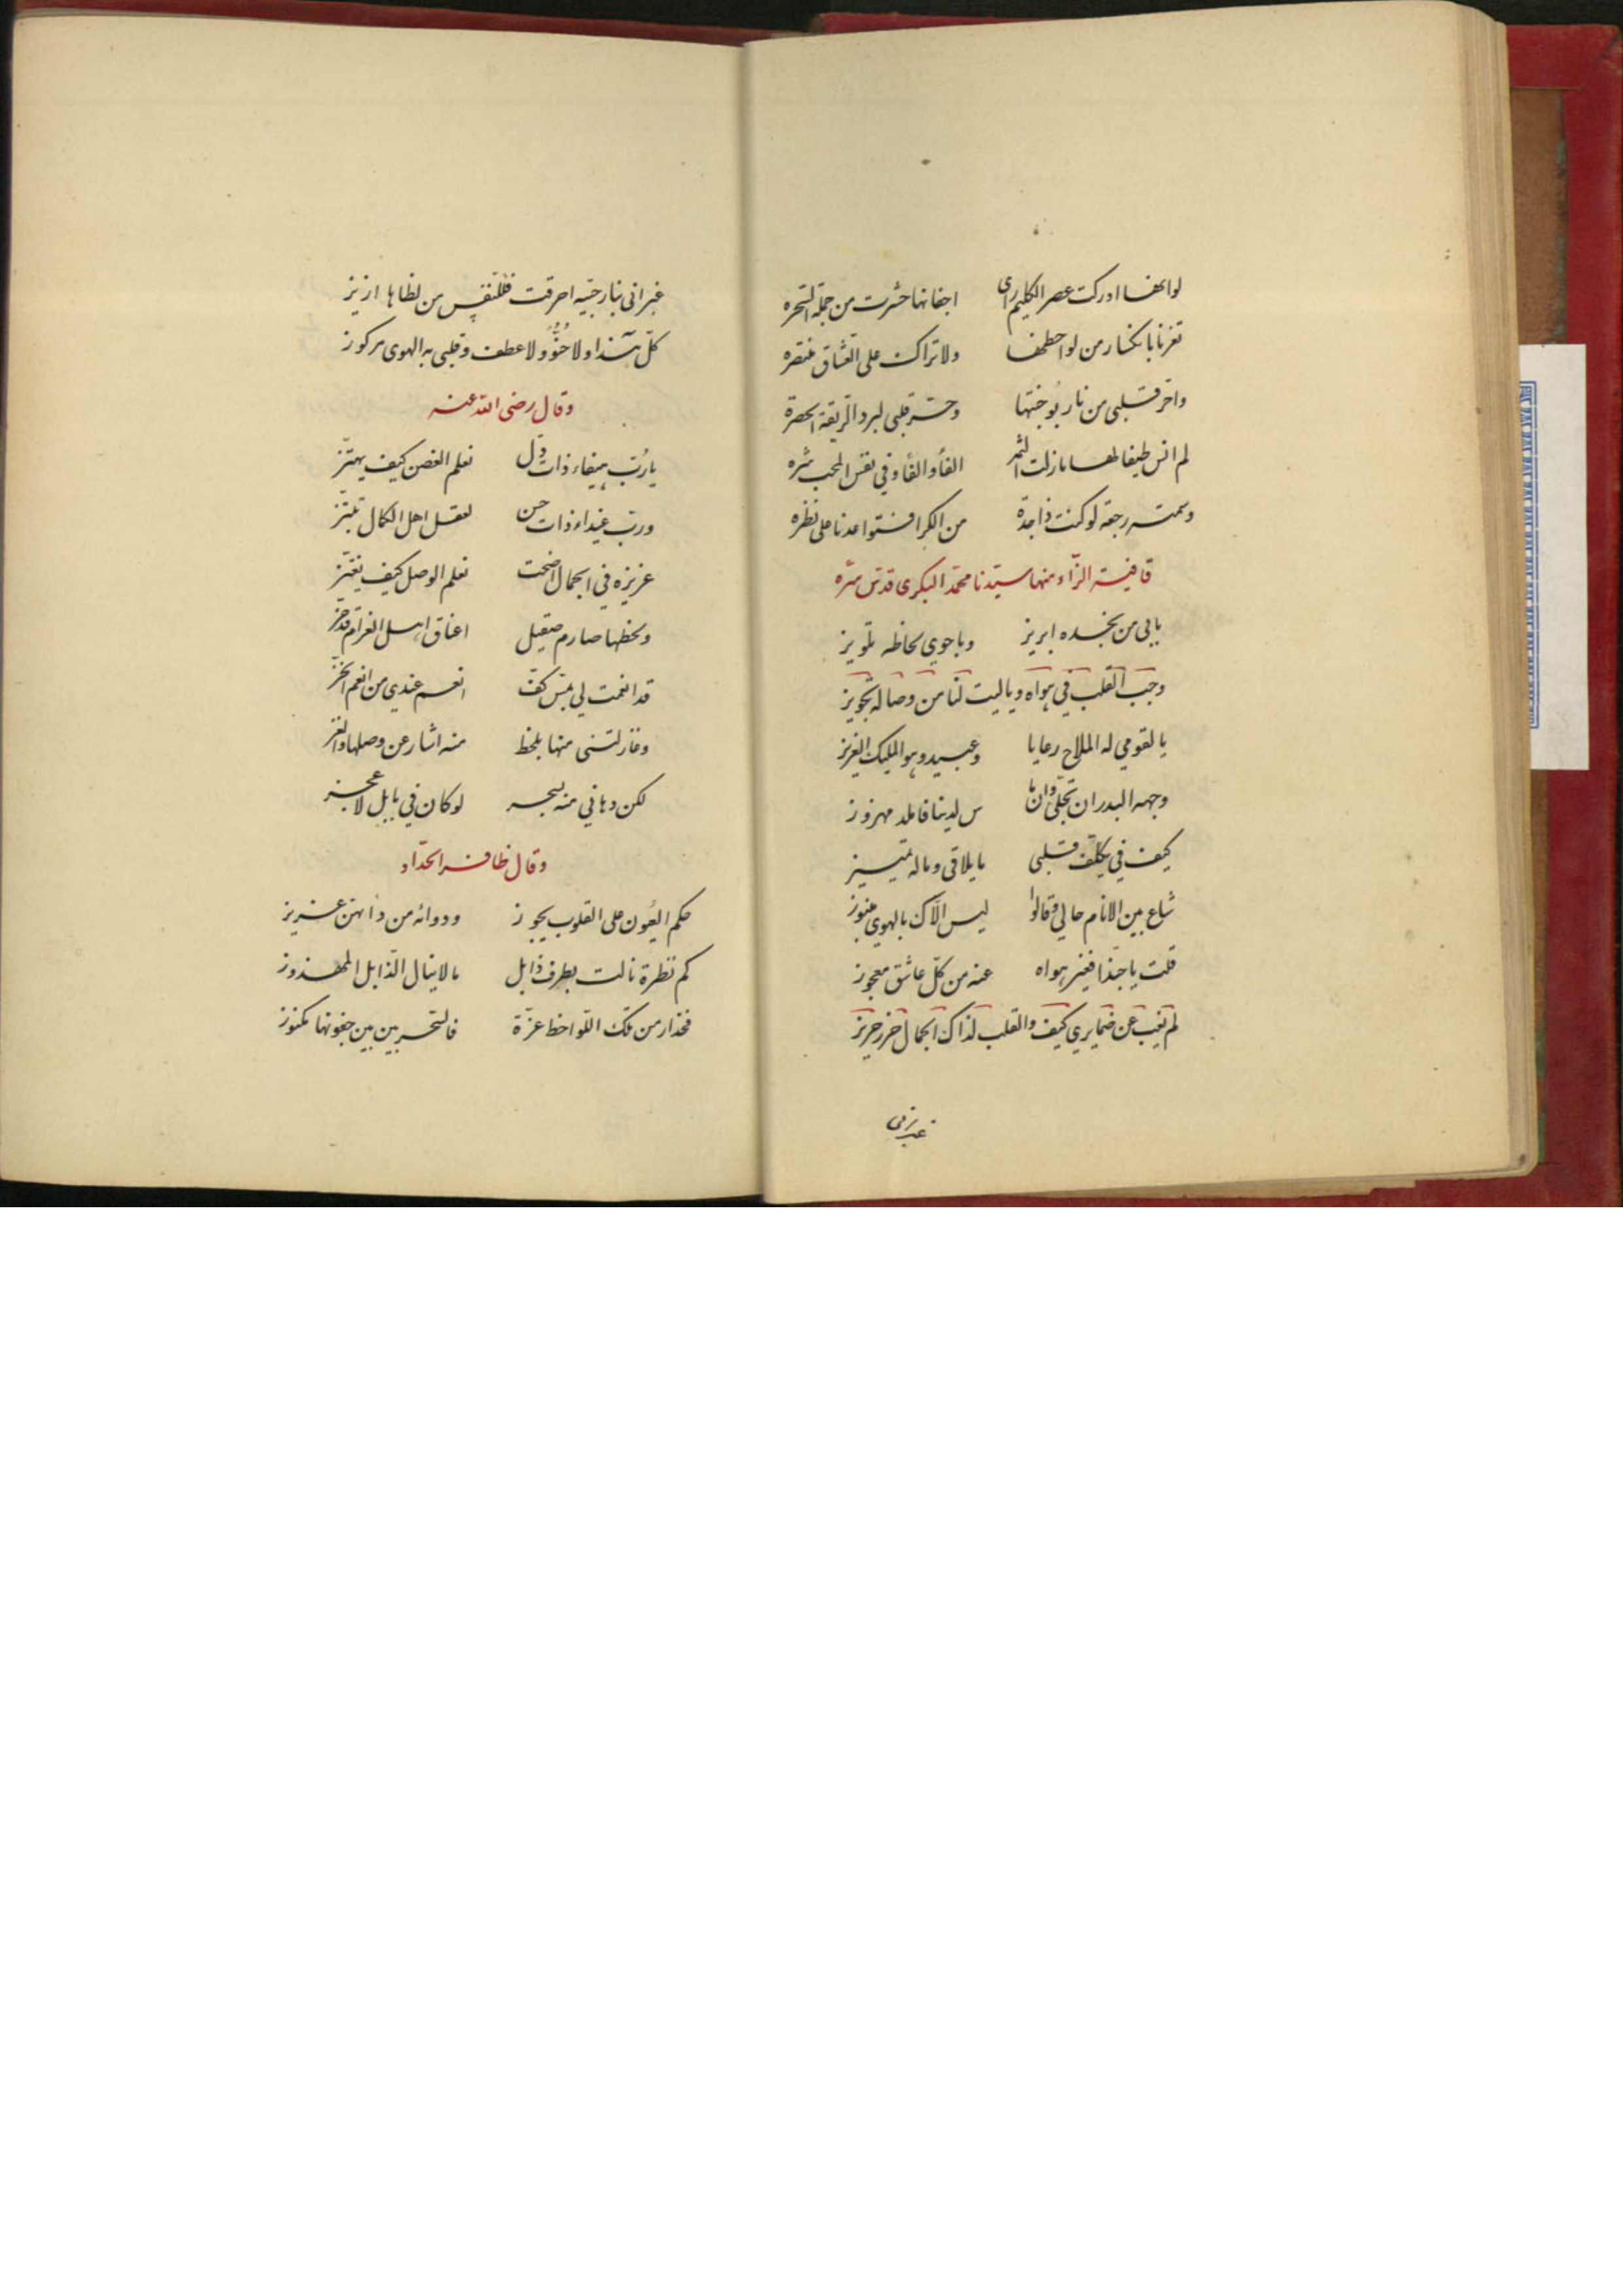 لو انها ادركت عصر الكليم راى اجفانها حشرت من جملة السحره
تغرنا بانكسار من لواحظها ولا تراك على العشاق منتصره
واحر قلبي من نار بوجنتها وحر قلبي لبرد الريقة الخصرة
لم انس طيفا لها ما زلت الثمر الفا والفا وفي نفس المحب شره
وسمته رجعة لو كنت ذا جدة من الكرا فتواعدنا على نظره
قافية الزاء منها سيدنا محمد البكرى قدس سره
بابى من بخده ابريز وباحوي لحاظه تلويز
وجب القلب في هواه وياليت لنا من وصاله تجويز
يا لقومي له الملاح رعايا وعبيد وهو المليك العزيز
وجهه البدر ان تجلى وان ما س لدينا فاملد مهزوز
كيف في يكلف قلبي ما يلاقى وماله تمييز
شاع بين الانام حالي وقالوا ليس الاك بالهوي منبوز
قلت يا حبذا فغير هواه عنه من كل عاشق معجوز
لم يغب عن ضمايري كيف والقلب لذاك الجمال حرز حريز
غير انى
غير انى بنار حبيه احرقت فللنفس من لظاها ازيز
كل هذا ولا حنو ولا عطف وقلبى به الهوى مركوز
وقال رضى الله عنه
يا رب هيفاء ذات دل تعلم الغصن كيف يهتز
ورب غيداء ذات حسن لعقل اهل الكمال تبتز
عزيزه في الجمال اضحت تعلم الوصل كيف يعتز
ولحظها صارم صقيل اعناق اهل الغرام قد حز
قد انعمت لي بمس كف انعم عندي من انعم الخز
وغازلتنى منها بلحظ منه اشار عن وصلها والغز
لكن دهاني منه بسحر لو كان في بابل لاعجز
وقال ظافر الحداد
حكم العيون على القلوب يجوز ودوائه من دائهن عزيز
كم نظرة نالت بطرف ذابل ما لا ينال الذابل المهزوز
فحذار من تلك اللواحظ عزة فالسحر بين بين جفونها مكنوز